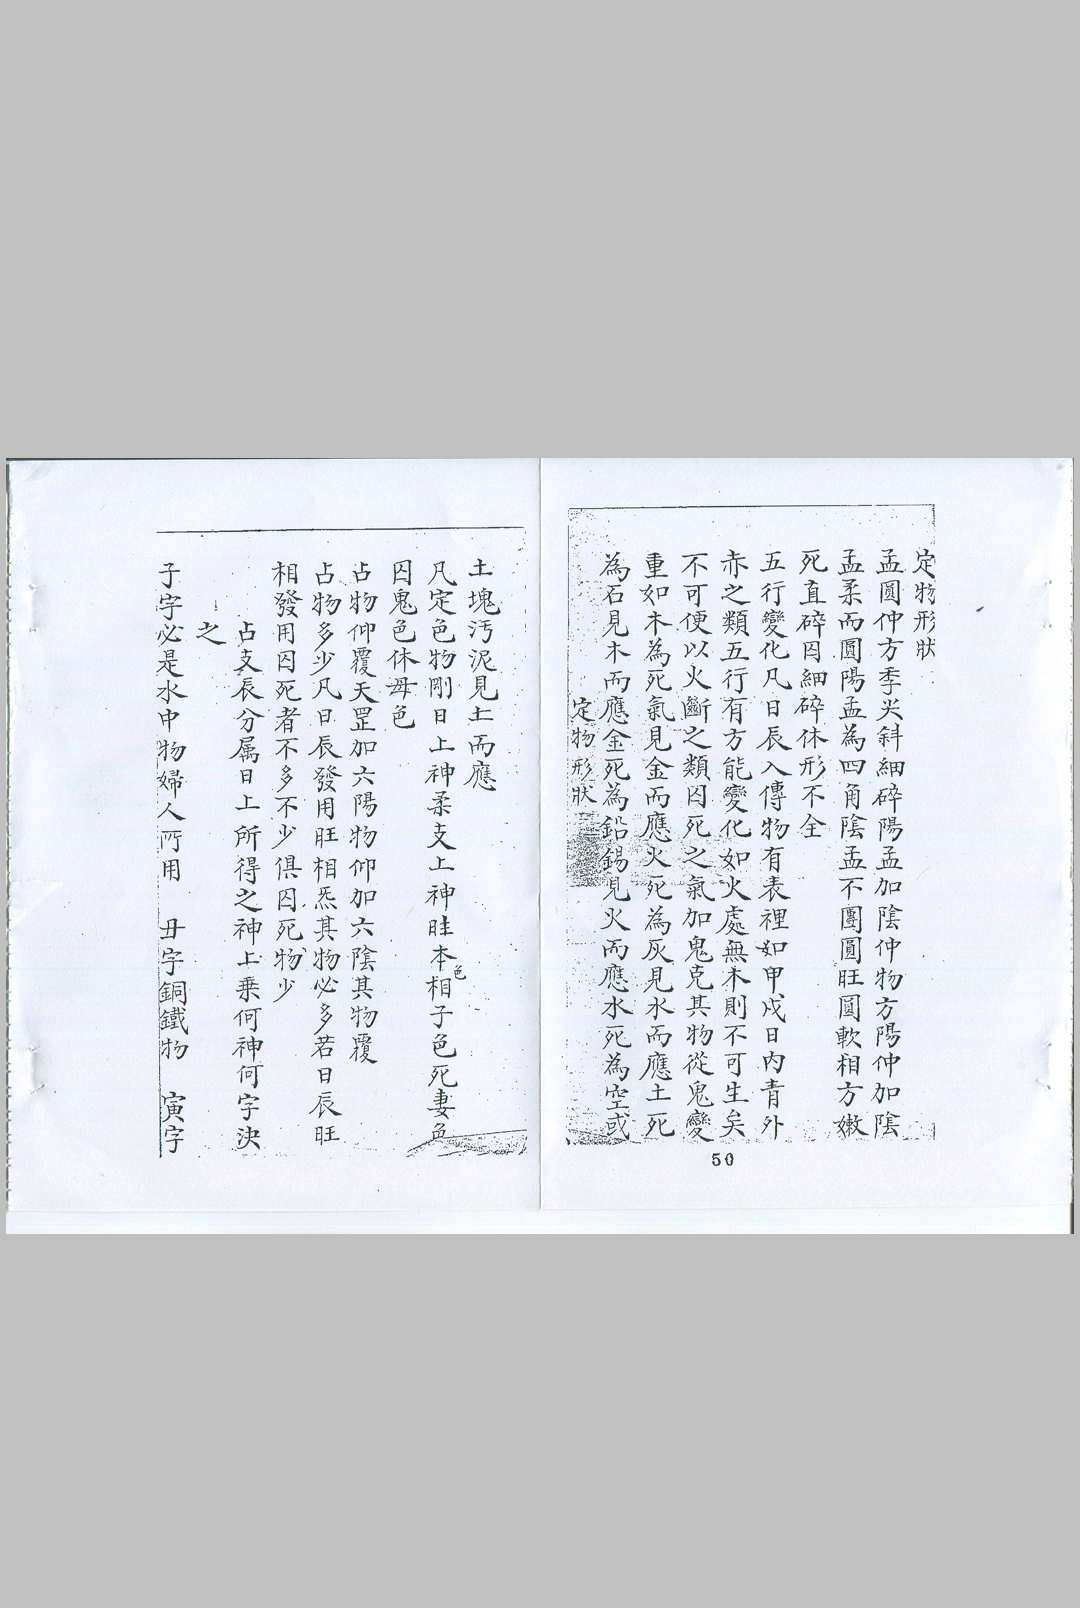 定物形狀
孟圓仲方季尖斜細碎陽孟加陰仲物方陽仲加陰
孟柔而圓陽孟為四角陰孟不團圓旺圓軟相方嫩
死直碎囚細碎休形不全
五行變化凡日辰入傳物有表裡如甲戌日內青外
赤之類五行有方能變化如火處無木則不可生矣
不可便以火斷之類囚死之氣加鬼克其物從鬼變
重如木為死氣見金而應火死為灰見水而應土死
為石見木而應金死為鉛錫見火而應水死為空或
定物形狀
50
土塊汚泥見土而應
凡定色物剛日上神柔支上神旺本色相子色死妻色
囚鬼色休母色
占物仰覆天罡加六陽物仰加六陰其物覆
占物多少凡日辰發用旺相炁其物必多若日辰旺
相發用囚死者不多不少俱囚死物少
占支辰分属日上所得之神上乘何神何字決
之
子字必是水中物婦人所用　丑字銅鐵物　寅字